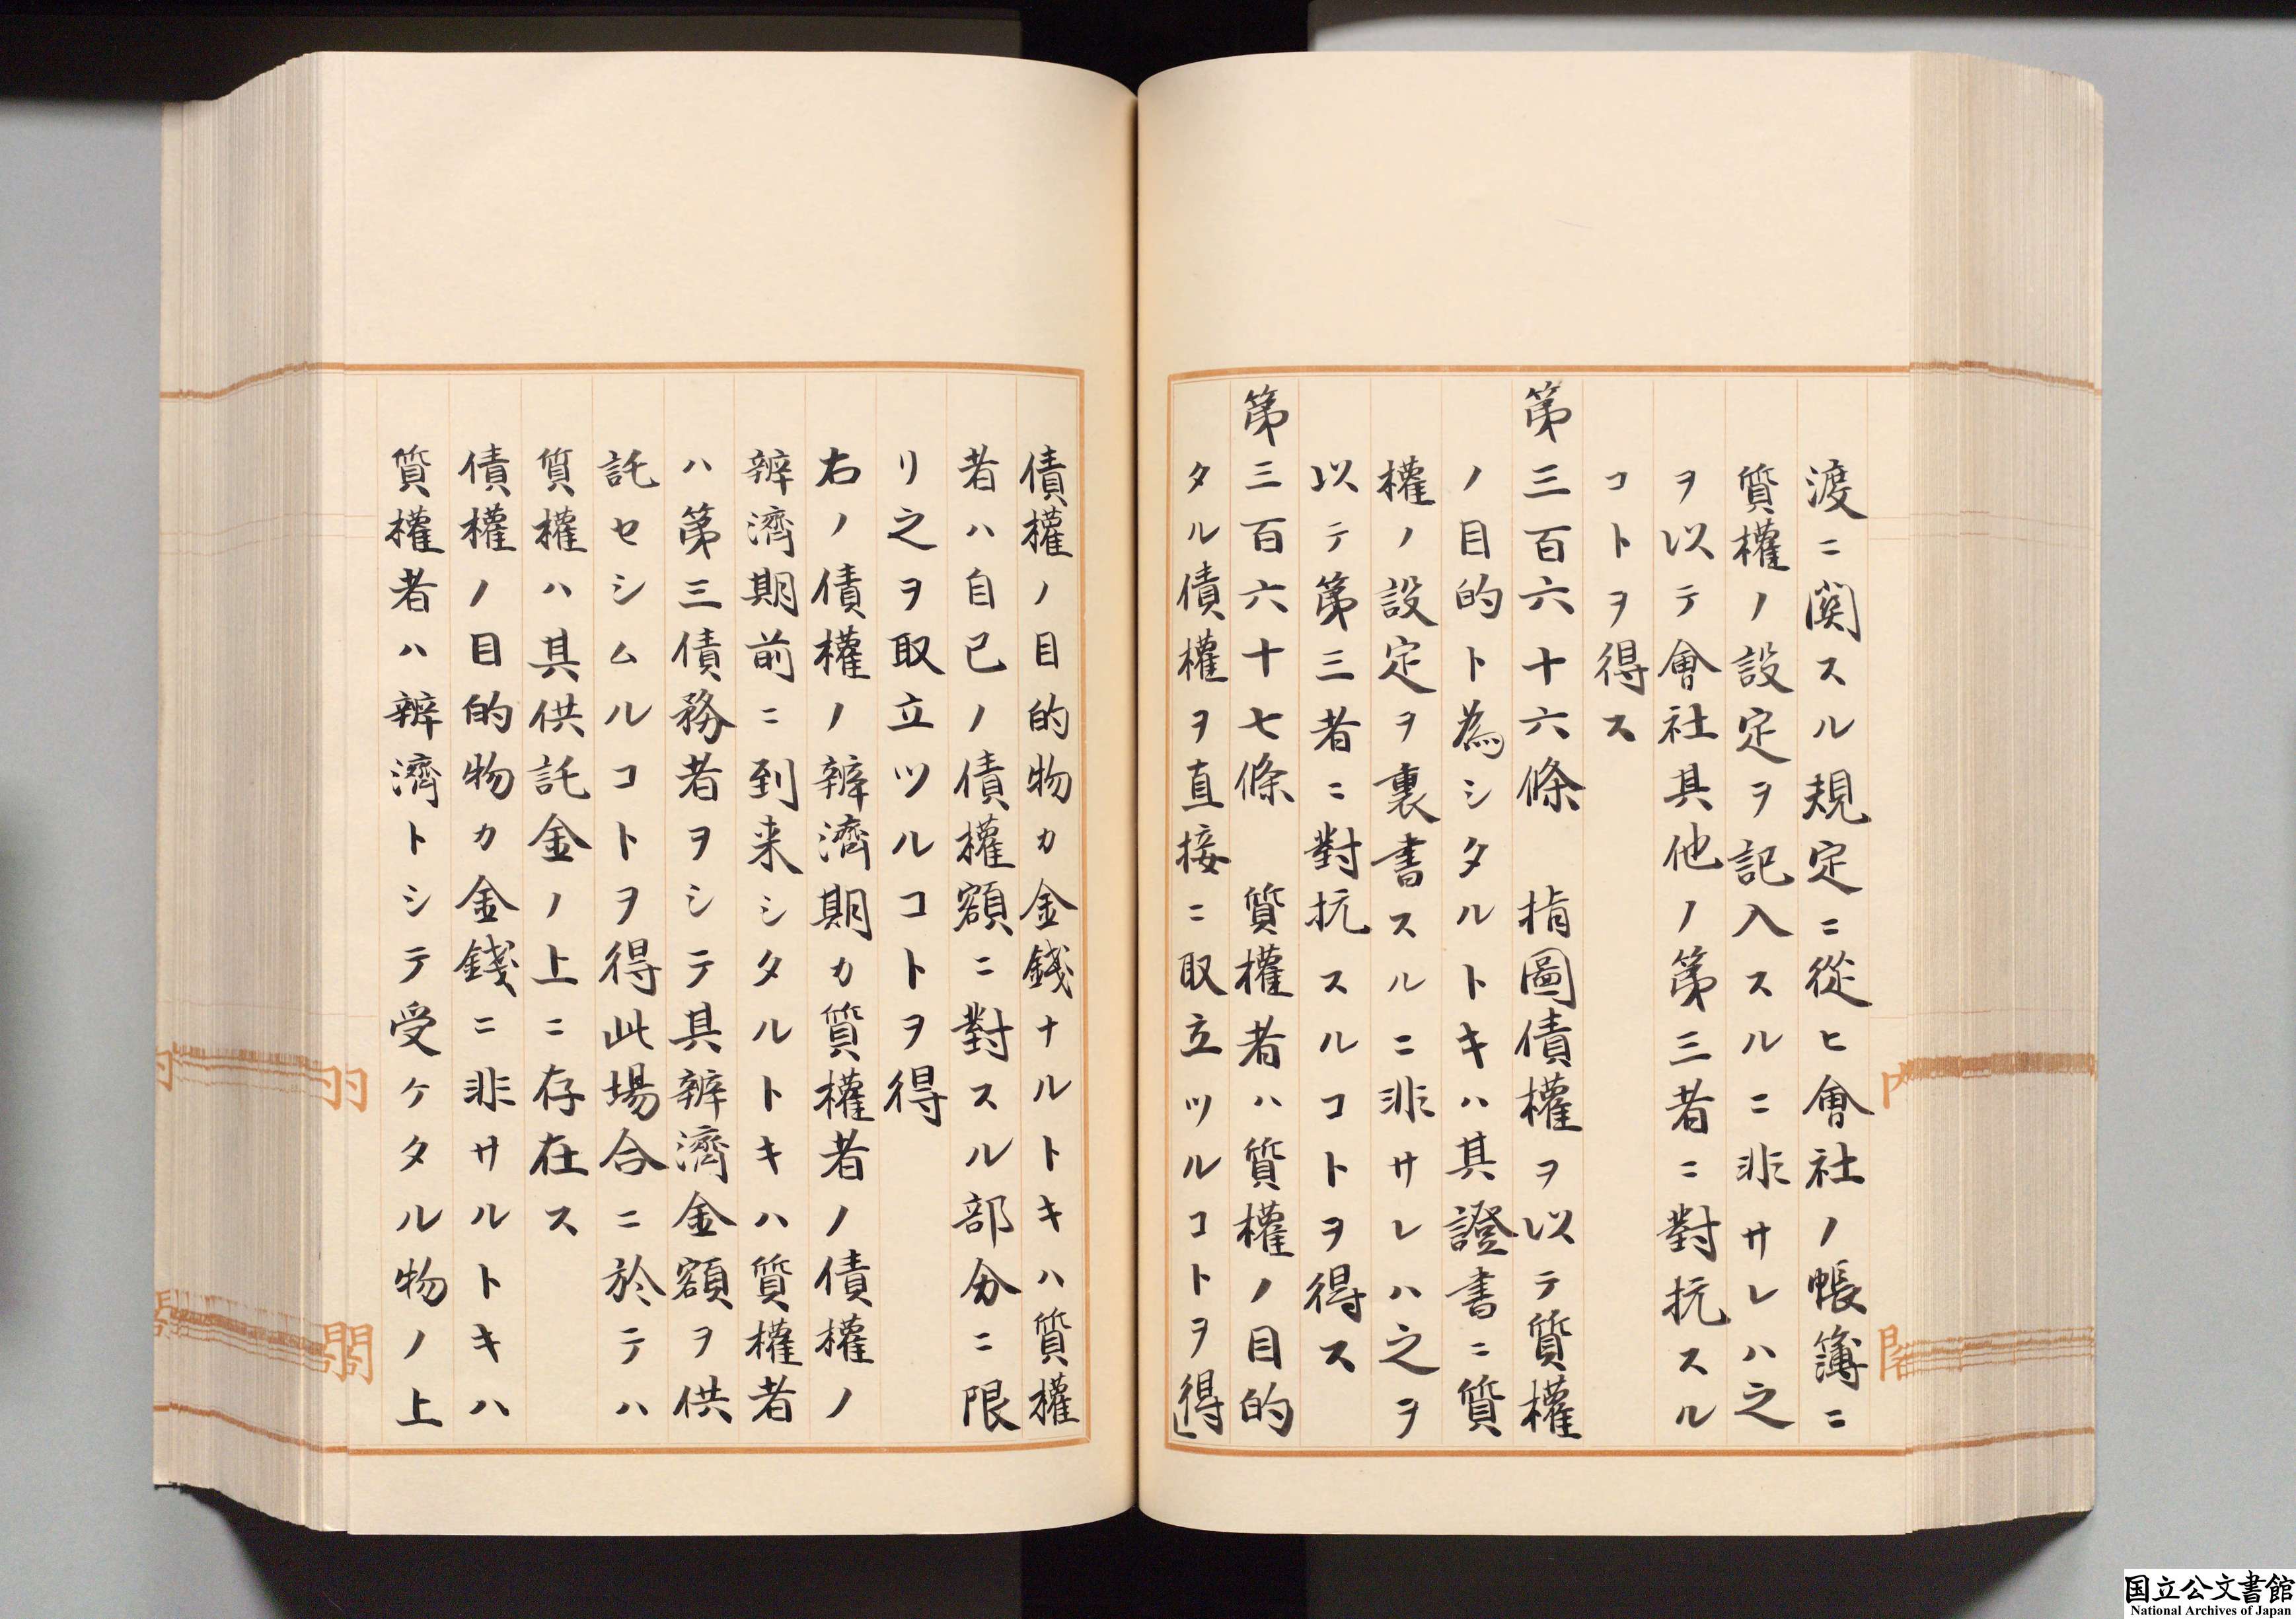 渡ニ関スル規定ニ從ヒ會社ノ帳簿ニ
質權ノ設定ヲ記入スルニ非サレハ之
ヲ以テ會社其他ノ第三者ニ對抗スル
コトヲ得ス
第三百六十六條 指圖債權ヲ以テ質權
ノ目的ト為シタルトキハ其證書ニ質
權ノ設定ヲ裏書スルニ非サレハ之ヲ
以テ第三者ニ對抗スルコトヲ得ス
第三百六十七條 質權者ハ質權ノ目的
タル債權ヲ直接ニ取立ツルコトヲ得
債權ノ目的物カ金錢ナルトキハ質權
者ハ自己ノ債權額ニ對スル部分ニ限
リ之ヲ取立ツルコトヲ得
右ノ債權ノ辨濟期カ質權者ノ債權ノ
辨濟期前ニ到来シタルトキハ質權者
ハ第三債務者ヲシテ其辨濟金額ヲ供
託セシムルコトヲ得此場合ニ於テハ
質權ハ其供託金ノ上ニ存在ス
債權ノ目的物カ金錢ニ非サルトキハ
質權者ハ辨濟トシテ受ケタル物ノ上
国立公文書館
National Archives of Japan